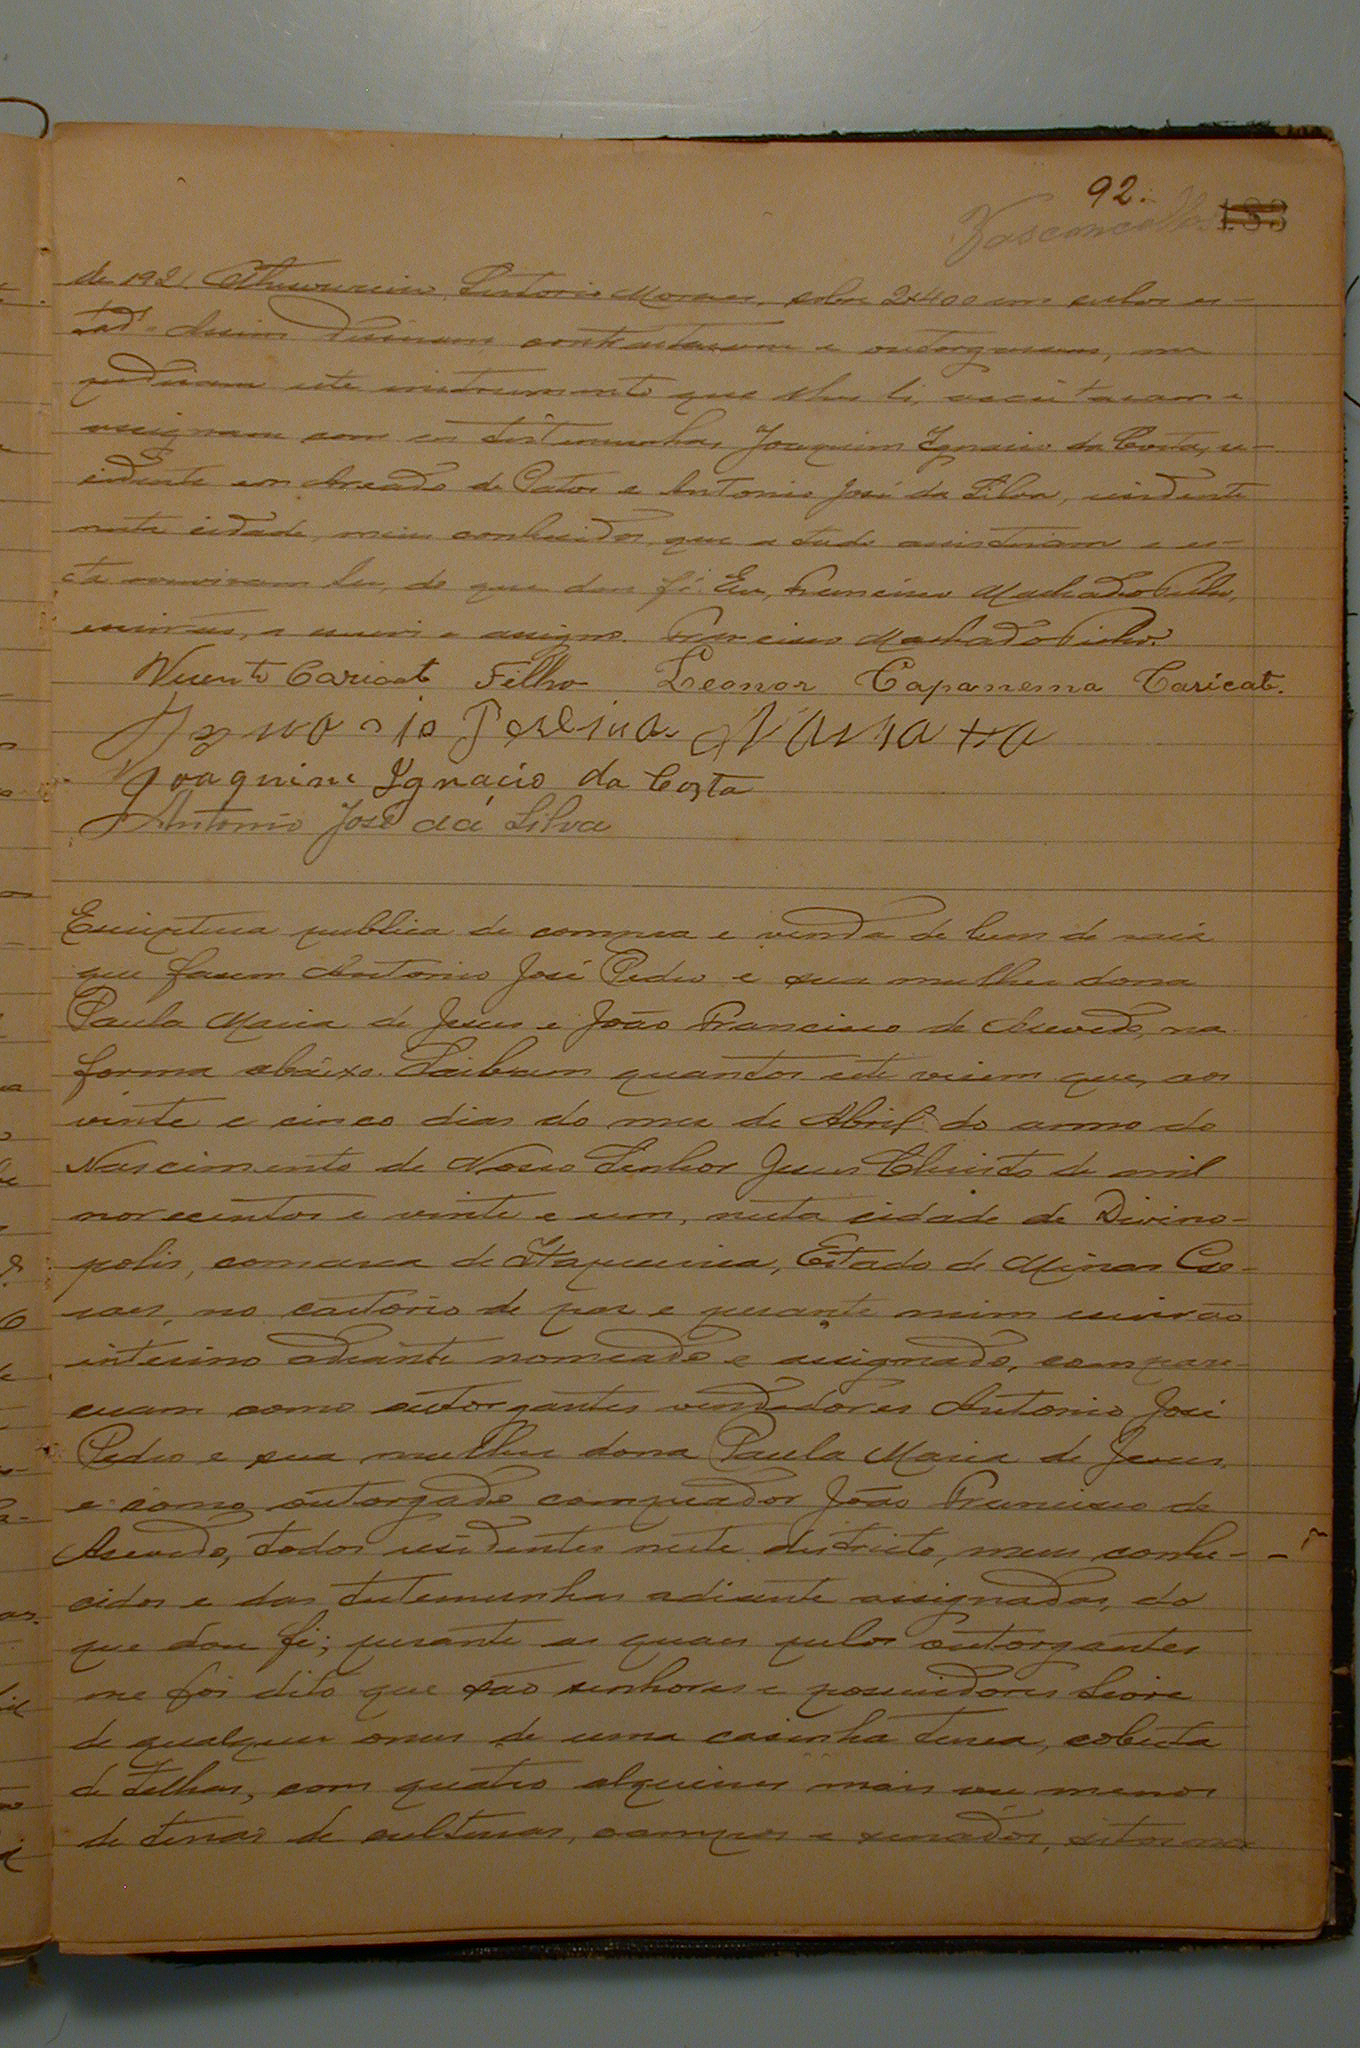 92.
Vasconcellos 183
de 1921. O thesoureiro, Sertorio Moraes, sobre 2$400 em sellos es-
tad. Assim disseram, contractaram e outorgaram, me
pediram este instrumento que lhes li, acceitaram e
assignam com as testemunhas Joaquim Ignacio da Costa, re-
sidente em Areado de Patos e Antonio José da Silva, residente
nesta cidade, meus conhecidos, que a tudo assistiram e es-
ta ouviram ler, do que dou fé. Eu, Francisco Machado Filho,
escrivão, a escrevi e assigno. Francisco Machado Filho.
Vicente Caricate Filho Leonor Capanema Caricate.
Ignacio Pereira
Joaquim Ignacio da Costa
Antonio José da Silva
Escriptura publica de compra e venda de bem de raiz
que fazem Antonio José Pedro e sua mulher dona
Paula Maria de Jesus e João Francisco de Asevedo, na
forma abaixo. Saibam quantos este virem que, aos
vinte e cinco dias do mez de Abril do anno do
Nascimento de Nosso Senhor Jesus Christo de mil
novecentos e vinte e um, nesta cidade de Divino-
polis, comarca de Itapecerica, Estado de Minas Ge-
raes, no cartorio de paz e perante mim escrivão
interino adeante nomeado e assignado, compare-
ceram como outorgantes vendedores Antonio José
Pedro e sua mulher dona Paula Maria de Jesus,
e como outorgado comprador João Francisco de
Asevedo, todos residentes neste districto, meus conhe-
cidos e das testemunhas adiante assignadas, do
que dou fé; perante as quaes pelos outorgantes
me foi dito que são senhores e possuidores livre
de qualquer onus de uma casinha terrea, coberta
de telhas, com quatro alqueires mais ou menos
de terras de culturas, campos e serrados, sitos na